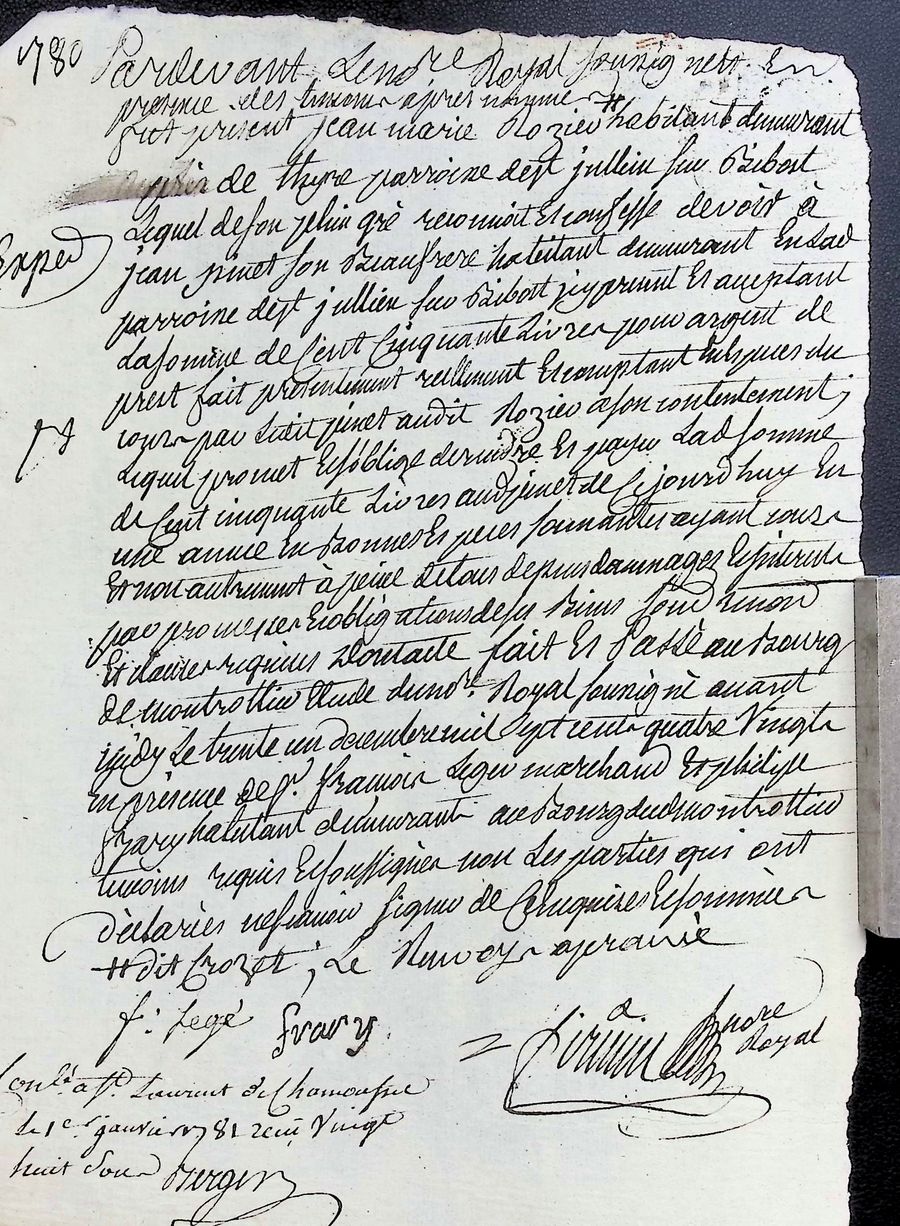 1780
Pardevant Le no.re Royal soussigné et En
presence des temoins apres nommes
fut present jean marie Rozier # habitant demeurant
de thyre parroisse de st jullien sur Bibost
Lequel de son plein gré reconnoit Et confesse devoir à
Exped
jean pinet son Beaufrere habitant demeurant En lad
parroisse de st jullien sur Bibost icy present Et acceptant
La somme de Cent Cinquante Livres pour argent de
prest fait presentement reellement Et comptant En Especes du
cours par Ledit pinet audit Rozier a son contentement ;
Lequel promet Et s'oblige de rendre Et payer Lad somme
de Cent cinquante Livres aud pinet de Ce jourd'huy En
une année En Bonnes Especes sonnantes ayant cours
Et non autrement à peine de tous depens dommages Et jnterets
par promesses Et obligations de ses Biens
Et clauses requises dont acte fait Et Passé au Bourg
de montrottier Etude du no.re Royal soussigné avant
midy Le trente un decembre mil sept cents quatre Vingts
En presence de s.r francois Leger marchand Et philipe
frary habitant demeurants au Bourg dud montrottier
temoins requis Et soussignes non Les parties qui ont
déclarées ne scavoir signer de Ce enquises Et sommées
# dit Crozet ; Le Renvoy approuvé
f: Legé
frary
no.re Royal
Con.lé a s.t Laurent de Chamousset
le 1.er janvier 1781 recu Vingt
huit sous
Berger